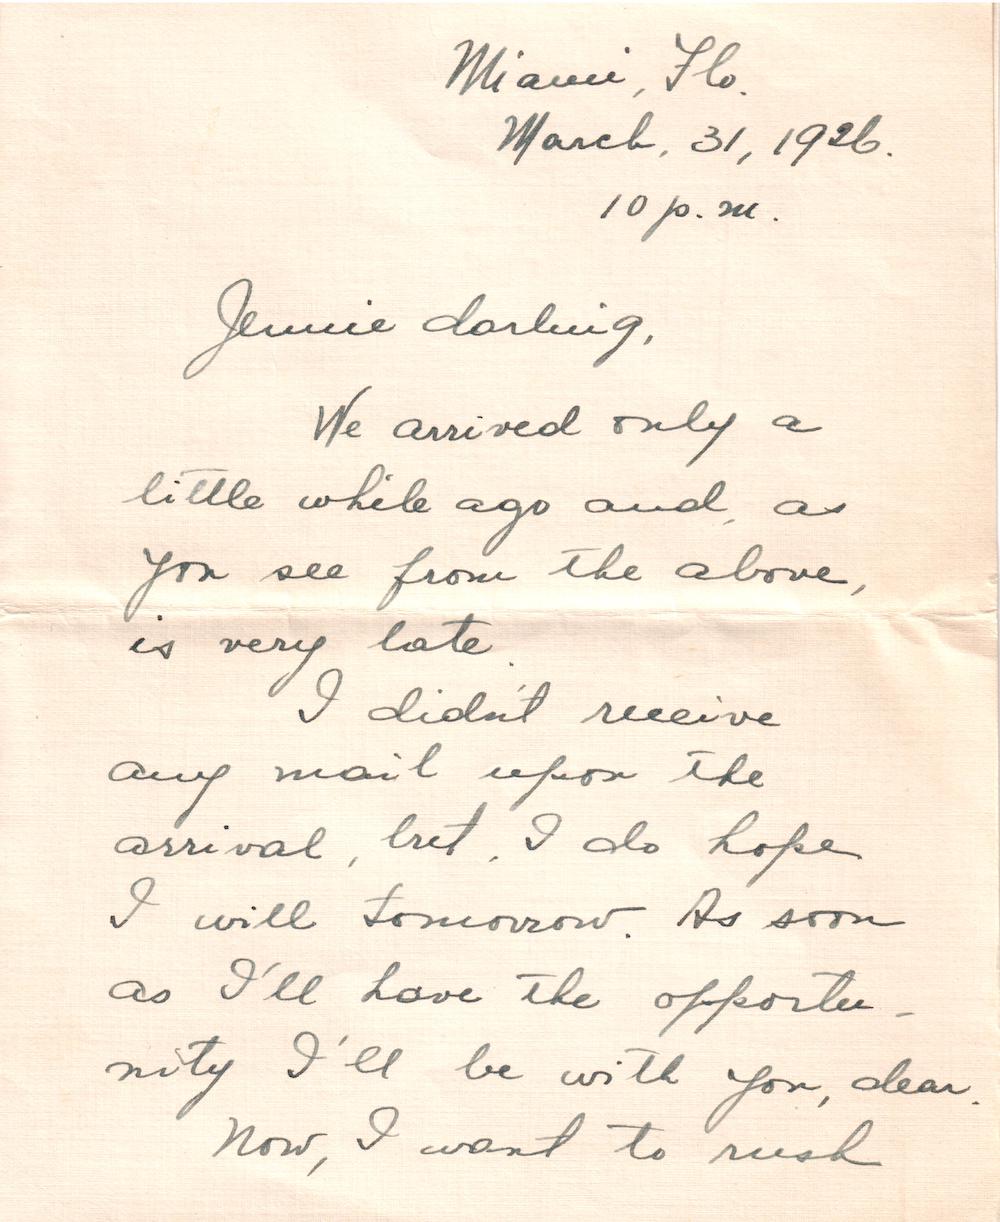 Miami, Flo.
March, 31, 1926.
10 p.m.
Jennie darling,
We arrived only a
little while ago and, as
you see from the above,
is very late.
I didn't receive
any mail upon the
arrival, but, I do hope
I will tomorrow. As soon
as I'll have the opportu-
nity I'll be with you, dear.
Now, I want to rush